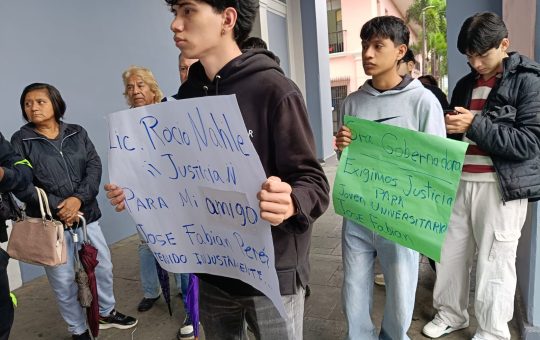 Lic. Rocio Nahle
¡¡ JUSTICIA !!
PARA Mi amigo
JOSE Fabian Perez
TENIDO INJUSTAMENTE
Sra. Gobernadora
Exigimos Justicia
PARA
Joven UNIVERSITARIO
Jose Fabian